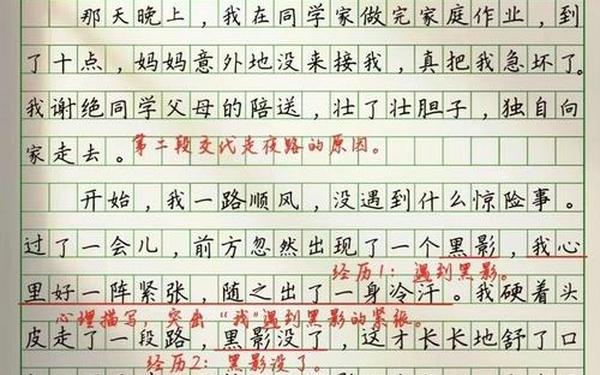 那天晚上，我在同学家做完家庭作业，到
了十点，妈妈意外地没来接我，真把我急坏了。
我谢绝同学父母的陪送，壮了壮胆子，独自向
家走去。第二段交代走夜路的原因。
开始，我一路顺风，没遇到什么惊险事。
过了一会儿，前方忽然出现了一个黑影，我心
经历1：遇到黑影。
里好一阵紧张，随之出了一身冷汗。我硬着头
心理描写，突出“我”遇到黑影的紧张。
皮走了一段路，黑影没了，这才长长地舒了口
经历2：黑影没了。